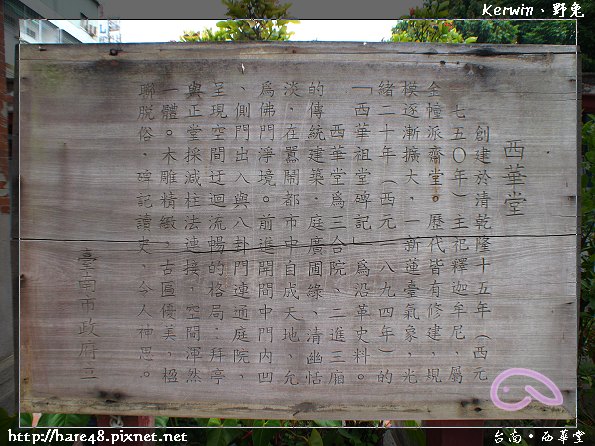 Kerwin、野兔
西華堂
創建於清乾隆十五年（西元
一七五〇年）主祀釋迦牟尼、屬
金幢派齋堂。歷代皆有修建、規
模逐漸擴大、一新蓮臺氣象，光
緒二十年（西元一八九四年）的
「西華祖堂碑記」為沿革史料。
西華堂為三合院、二進三廂
的傳統建築，庭廣圃綠、清幽恬
淡，在囂鬧都市中自成天地、允
為佛門淨境。前進開間中門內凹
、側門出入與八卦門連通庭院、
呈現空間迂迴流暢的格局，拜亭
與正堂採減柱法連接，空間渾然
一體。木雕精緻，古匾優美，楹
聯脫俗，碑記讀史、令人神思。
臺南市政府立
http://hare48.pixnet.net
台南・西華堂